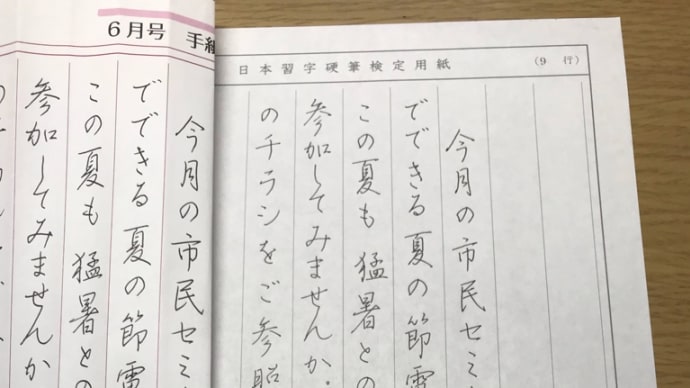 6月号 手紙
今月の市民セミ
でできる夏の節電
この夏も猛暑との
参加してみませんか
日本習字硬筆検定用紙
(9 行)
今月の市民セミ
でできる夏の節電
この夏も猛暑との
参加してみませんか。
のチラシをご参照